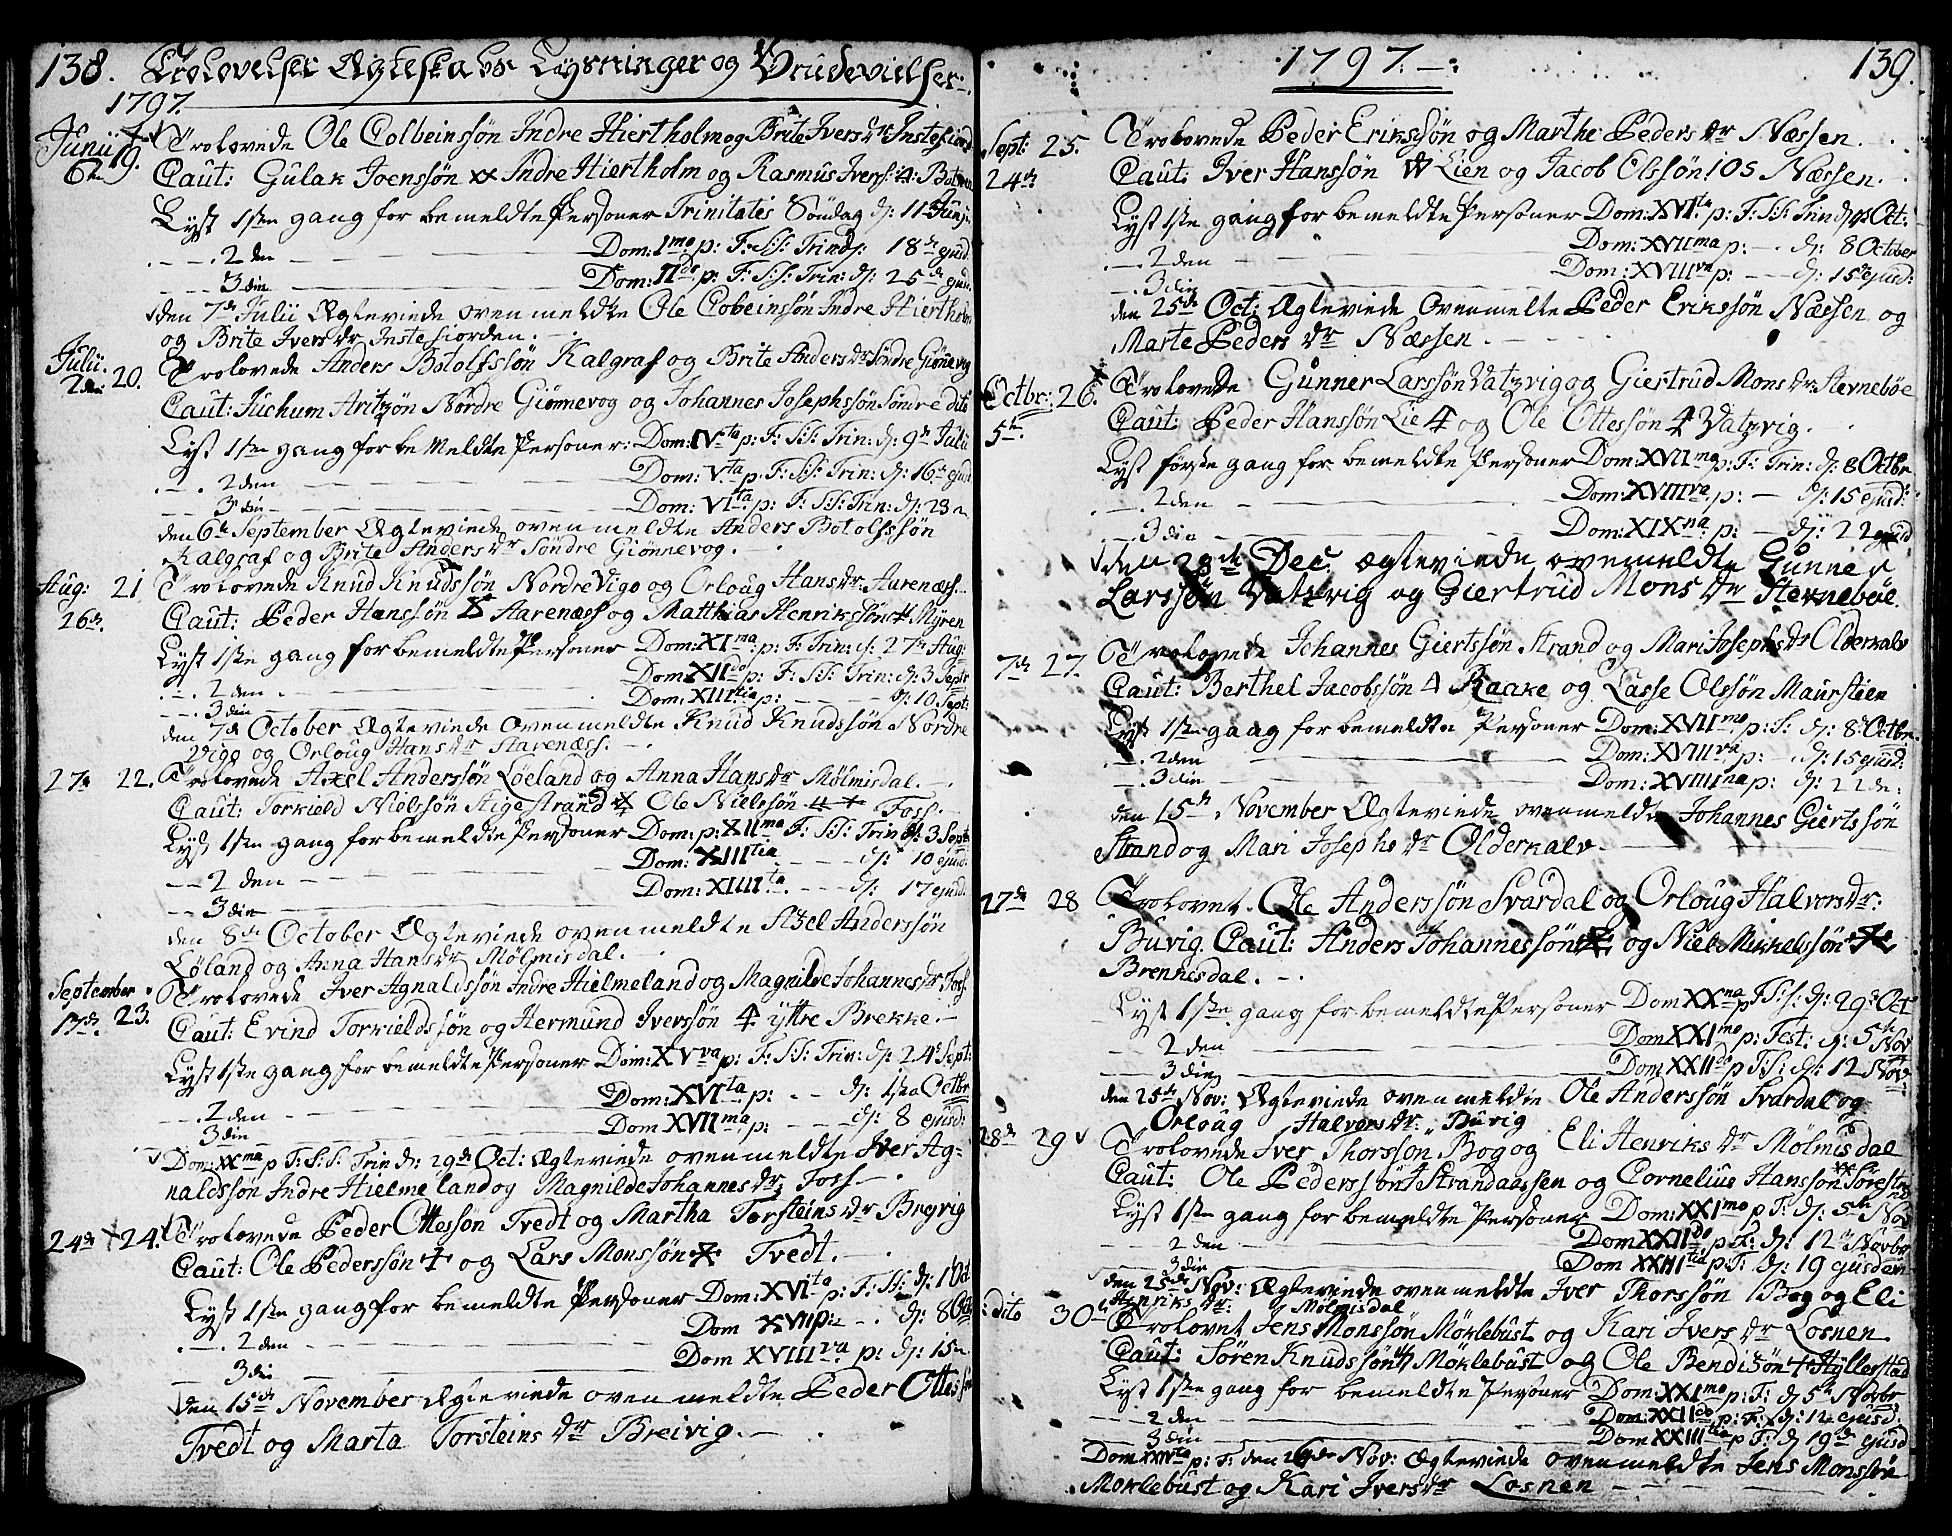 138. Trolovelser Ægteskabs Lysninger og Brudevielser.
1797.
Junii 19. Trolovede Ole Colbeinssøn Indre Hiertholm og Brite Ivers dr Instefiord
6te Caut: Gulak Joenssøn xx Indre Hiertholm og Rasmus Iverss: 4:
Lyst 1ste gang for bemeldte Personer Trinitatis Søndag d: 11te Junii
2den Dom: Imo p: F: S:S: Trin d: 18de ejusd:
3din Dom: IIdo p: F: S:S: Trin: d: 25de ejusd.
den 7de Julii Ægteviede ovenmeldte Ole Cobeinssøn Indre Hiertholm
og Brite Ivers dr Instefiorden.
Julii. 20. Trolovede Anders Botolfssøn Kalgraf og Brite Anders dr Søndre Giønnevog
2den Caut: Juchum Aritzøn Nordre Giønnevog og Johannes Josephssøn Søndre dito
Lyst 1ste gang for be meldte Personer: Dom: IVta p: F: S:S: Trin: d: 9de Julii
2den Dom: Vta p: F: S:S: Trin: d: 16de ejusd
3din Dom: VIta p: F: S:S: Trin: d: 23de
den 6te September Ægteviede ovenmeldte Anders Botolfssøn
Kalgraf og Brite Anders dr Søndre Giønnevog.
Aug: 21 Trolovede Knud Knudssøn Nordre Vigo og Orloug Hans dr. Aarenæss.
26de. Caut: Peder Hanssøn Aarenæss og Matthias Henrikssøn Myren
Lyst 1ste gang for bemeldte Personer Dom: XIma: p: F: Trin: d: 27de Aug:
2den Dom: XIIdo p: F: S:S: Trin: d: 3 Septr
3din Dom: XIIItia p: d: 10 Sept:
den 7de October Ægteviede ovenmeldte Knud Knudssøn Nordre
Vigo og Orloug Hans dr Aarenæss.
27de 22. Trolovede Axel Anderssøn Løeland og Anna Hans dr Mølmisdal.
Caut: Torkield Nielssøn Stigestrand Ole Nielssøn Foss.
Lyst 1ste gang for bemeldte Personer Dom: p: XIIma F: S:S: Trin d: 3 Septr
2den Dom: XIIItia d: 10 ejusd:
3din Dom: XIIIIta. d: 17 ejusd:
den 8de October Ægteviede ovenmeldte Axel Anderssøn
Løland og Anna Hans dr Mølmisdal.
September 23. Trolovede Iver Agnaldssøn Indre Hielmeland og Magnilde Johannes dr Foss.
17de. Caut: Evind Torkieldssøn og Hermund Iverssøn 4 yttre Brekke.
Lyst 1ste gang for bemeldte Personer Dom: XVva p: F: S:S: Trin: d: 24de Sept:
2den Dom: XVIta p: d: 1ste Octbr
3din Dom XVIIma p: d: 8 ejusd:
Dom: XXma p F: S:S: Trin d: 29de Oct: Ægteviede ovenmeldte Iver Ag-
naldssøn Indre Hielmeland og Magnilde Johannes dr Foss.
24de 24. Trolovede Peder Ottessøn Tvedt og Martha Torsteins dr Breyvig
Caut: Ole Pederssøn og Lars Monssøn Tvedt.
Lyst 1ste gang for bemeldte Personer Dom: XVIta p: F: S:S: d: 1 Oct
2den Dom XVII p: d: 8 Oct
3din Dom XVIIIva p: d: 15de
den 15de November Ægteviede ovenmeldte Peder Ottessøn
Tvedt og Marta Torsteins dr Breivig.
1797. 139.
Sept: 25. Trolovede Peder Erikssøn og Marthe Peders dr Næssen.
24de Caut: Iver Hanssøn Lien og Jacob Olssøn Næssen.
Lyst 1ste gang for bemeldte Personer Dom: XVIta p: F: S:S: Trin d: 1 Oct:
2den Dom: XVIIma p: d: 8 October
3din Dom: XVIIIva p: d: 15de ejusd:
den 25de Oct: Ægteviede ovenmelte Peder Erikssøn Næssen og
Marte Peders dr Næssen.
Octbr: 26. Trolovede Gunner Larssøn Vatzvig og Giertrud Mons dr Stevnebøe
5te. Caut: Peder Hanssøn Lie 4 og Ole Ottessøn 4 Vatzvig.
Lyst første gang for bemeldte Personer Dom: XVIIma p: F: Trin: d: 8 Octbr
2den Dom: XVIIIva p: d: 15 ejusd:
3din Dom: XIXna p: d: 22 ejusd
den 28de Dec. Ægteviede ovemeldte Gunner
Larssøn Vatzvig og Giertrud Mons dr Stevnebøe.
7de 27. Trolovede Johannes Giertssøn Strand og Mari Josephs dr Olderkalv
Caut: Berthel Jacobssøn 4 Raake og Lasse Olssøn Maursteen
Lyst 1ste gaag for bemeldte Personer Dom: XVIImo p: S: d: 8de Octbr.
2den Dom: XVIIIva p: d: 15 ejusd:
3din Dom: XVIIIIna p: d: 22de:
den 15de November Ægteviede ovenmeldte Johannes Giertssøn
Strand og Mari Josephs dr Olderkalv.
27de 28 Trolovet Ole Anderssøn Svardal og Orloug Halvors dr:
Buvig. Caut: Anders Johannessøn og Niels Mikkelssøn
Brennisdal.
Lyst 1ste gang for bemeldte Personer Dom XXna p F: S: d: 29de Oct
2den Dom XXImo p: Fest: d: 5te Nov
3din Dom XXIIdo p F: S: d: 12 Nov
den 25de Nov: Ægteviede ovenmeldte Ole Anderssøn Svardal og
Orloug Halvors dr: Buvig
28de 29 Trolovede Iver Thorssøn Bog og Eli Henriks dr Mølmisdal
Caut: Ole Pederssøn 4 Strandaassen og Cornelius Hanssøn Sørestrand
Lyst 1ste gang for bemeldte Personer Dom: XXImo p F: d: 5te Nov
2den Dom XXIIdo p F: d: 12te Novbr
3din Dom XXIIItia p F: d: 19 ejusdem
den 25de Nov: Ægteviede ovenmeldte Iver Thorssøn Bog og Eli
Henriks dr: Mølmisdal
dito 30 Trolovet Jens Monssøn Møklebust og Kari Ivers dr Losnen
Caut: Søren Knudssøn Møklebust og Ole Bendixøn Hyllestad
Lyst 1ste gang for bemeldte Personer Dom: XXImo p: F: d 5te Novbr
2den Dom: XXIIdo p: F: d: 12 ejusd
3din Dom XXIIItia p F: d 19de ejusd
Dom XXIVta p: F: den 26de Nov: Ægteviede ovenmeldte Jens Monssøn
Møklebust og Kari Ivers dr Losnen